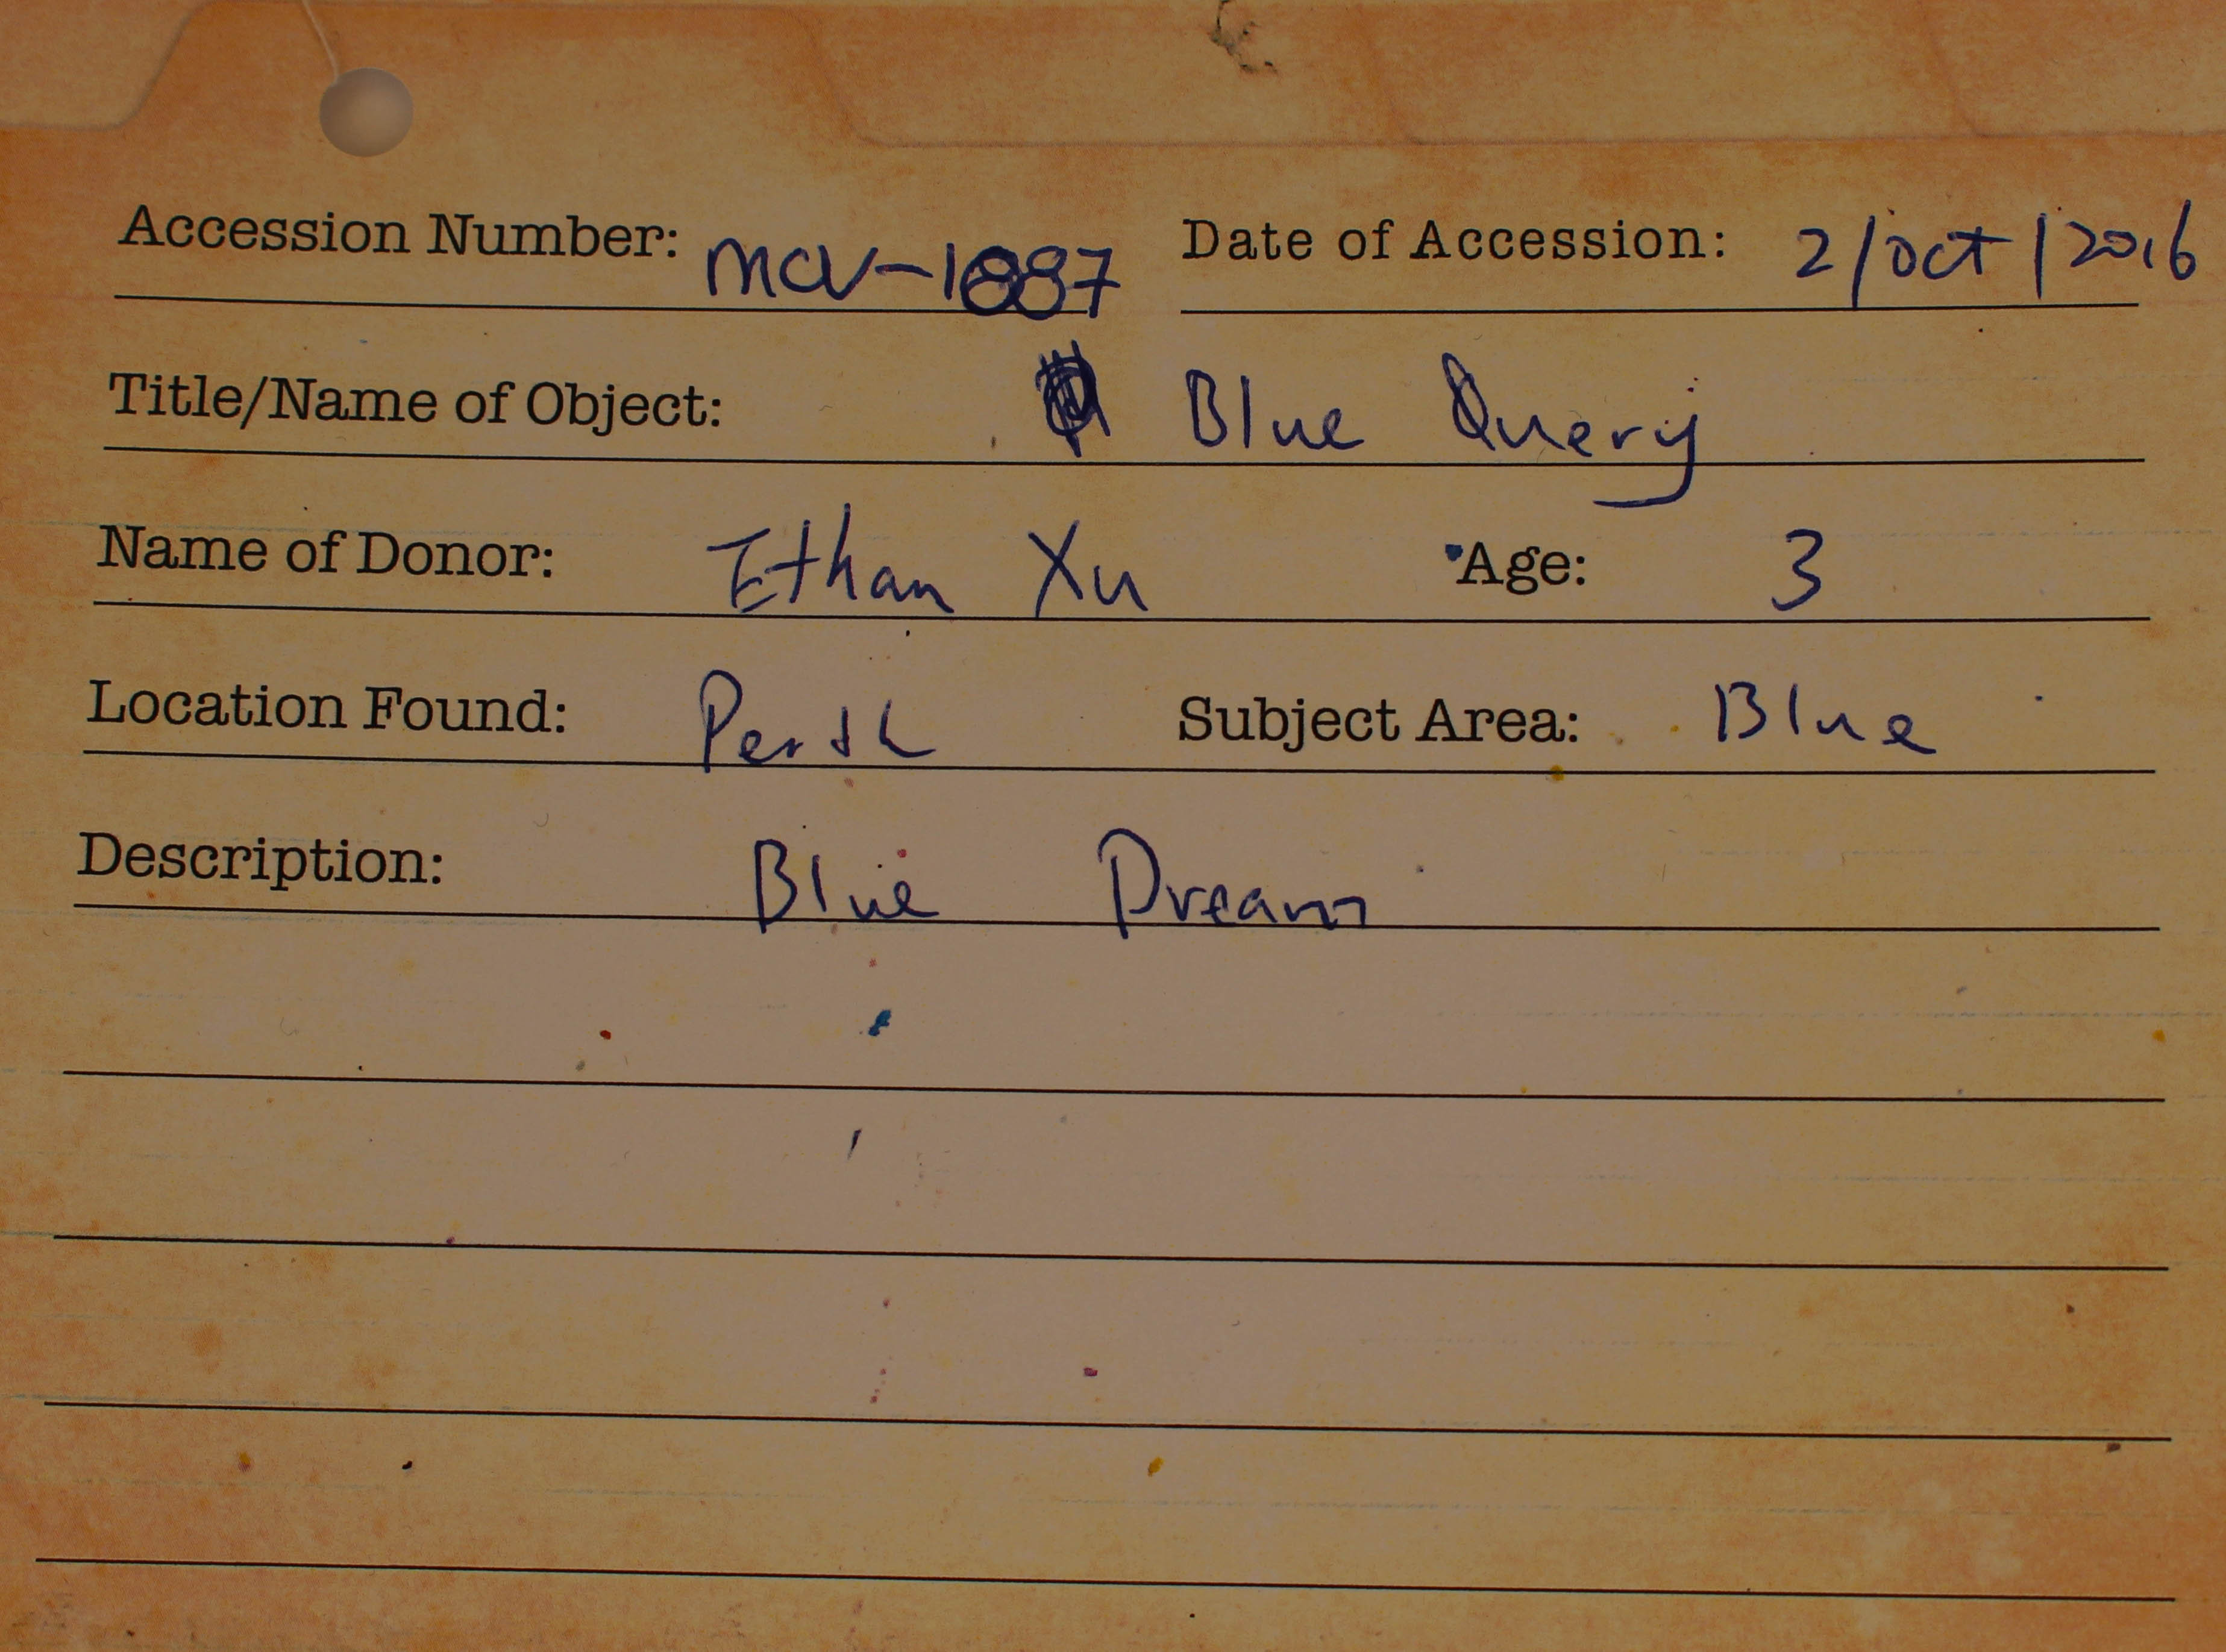 Accession Number: MCV-1887 Date of Accession: 2/Oct/2016
Title/Name of Object: Blue Query
Name of Donor: Ethan Xu Age: 3
Location Found: Perth Subject Area: Blue
Description: Blue Dream